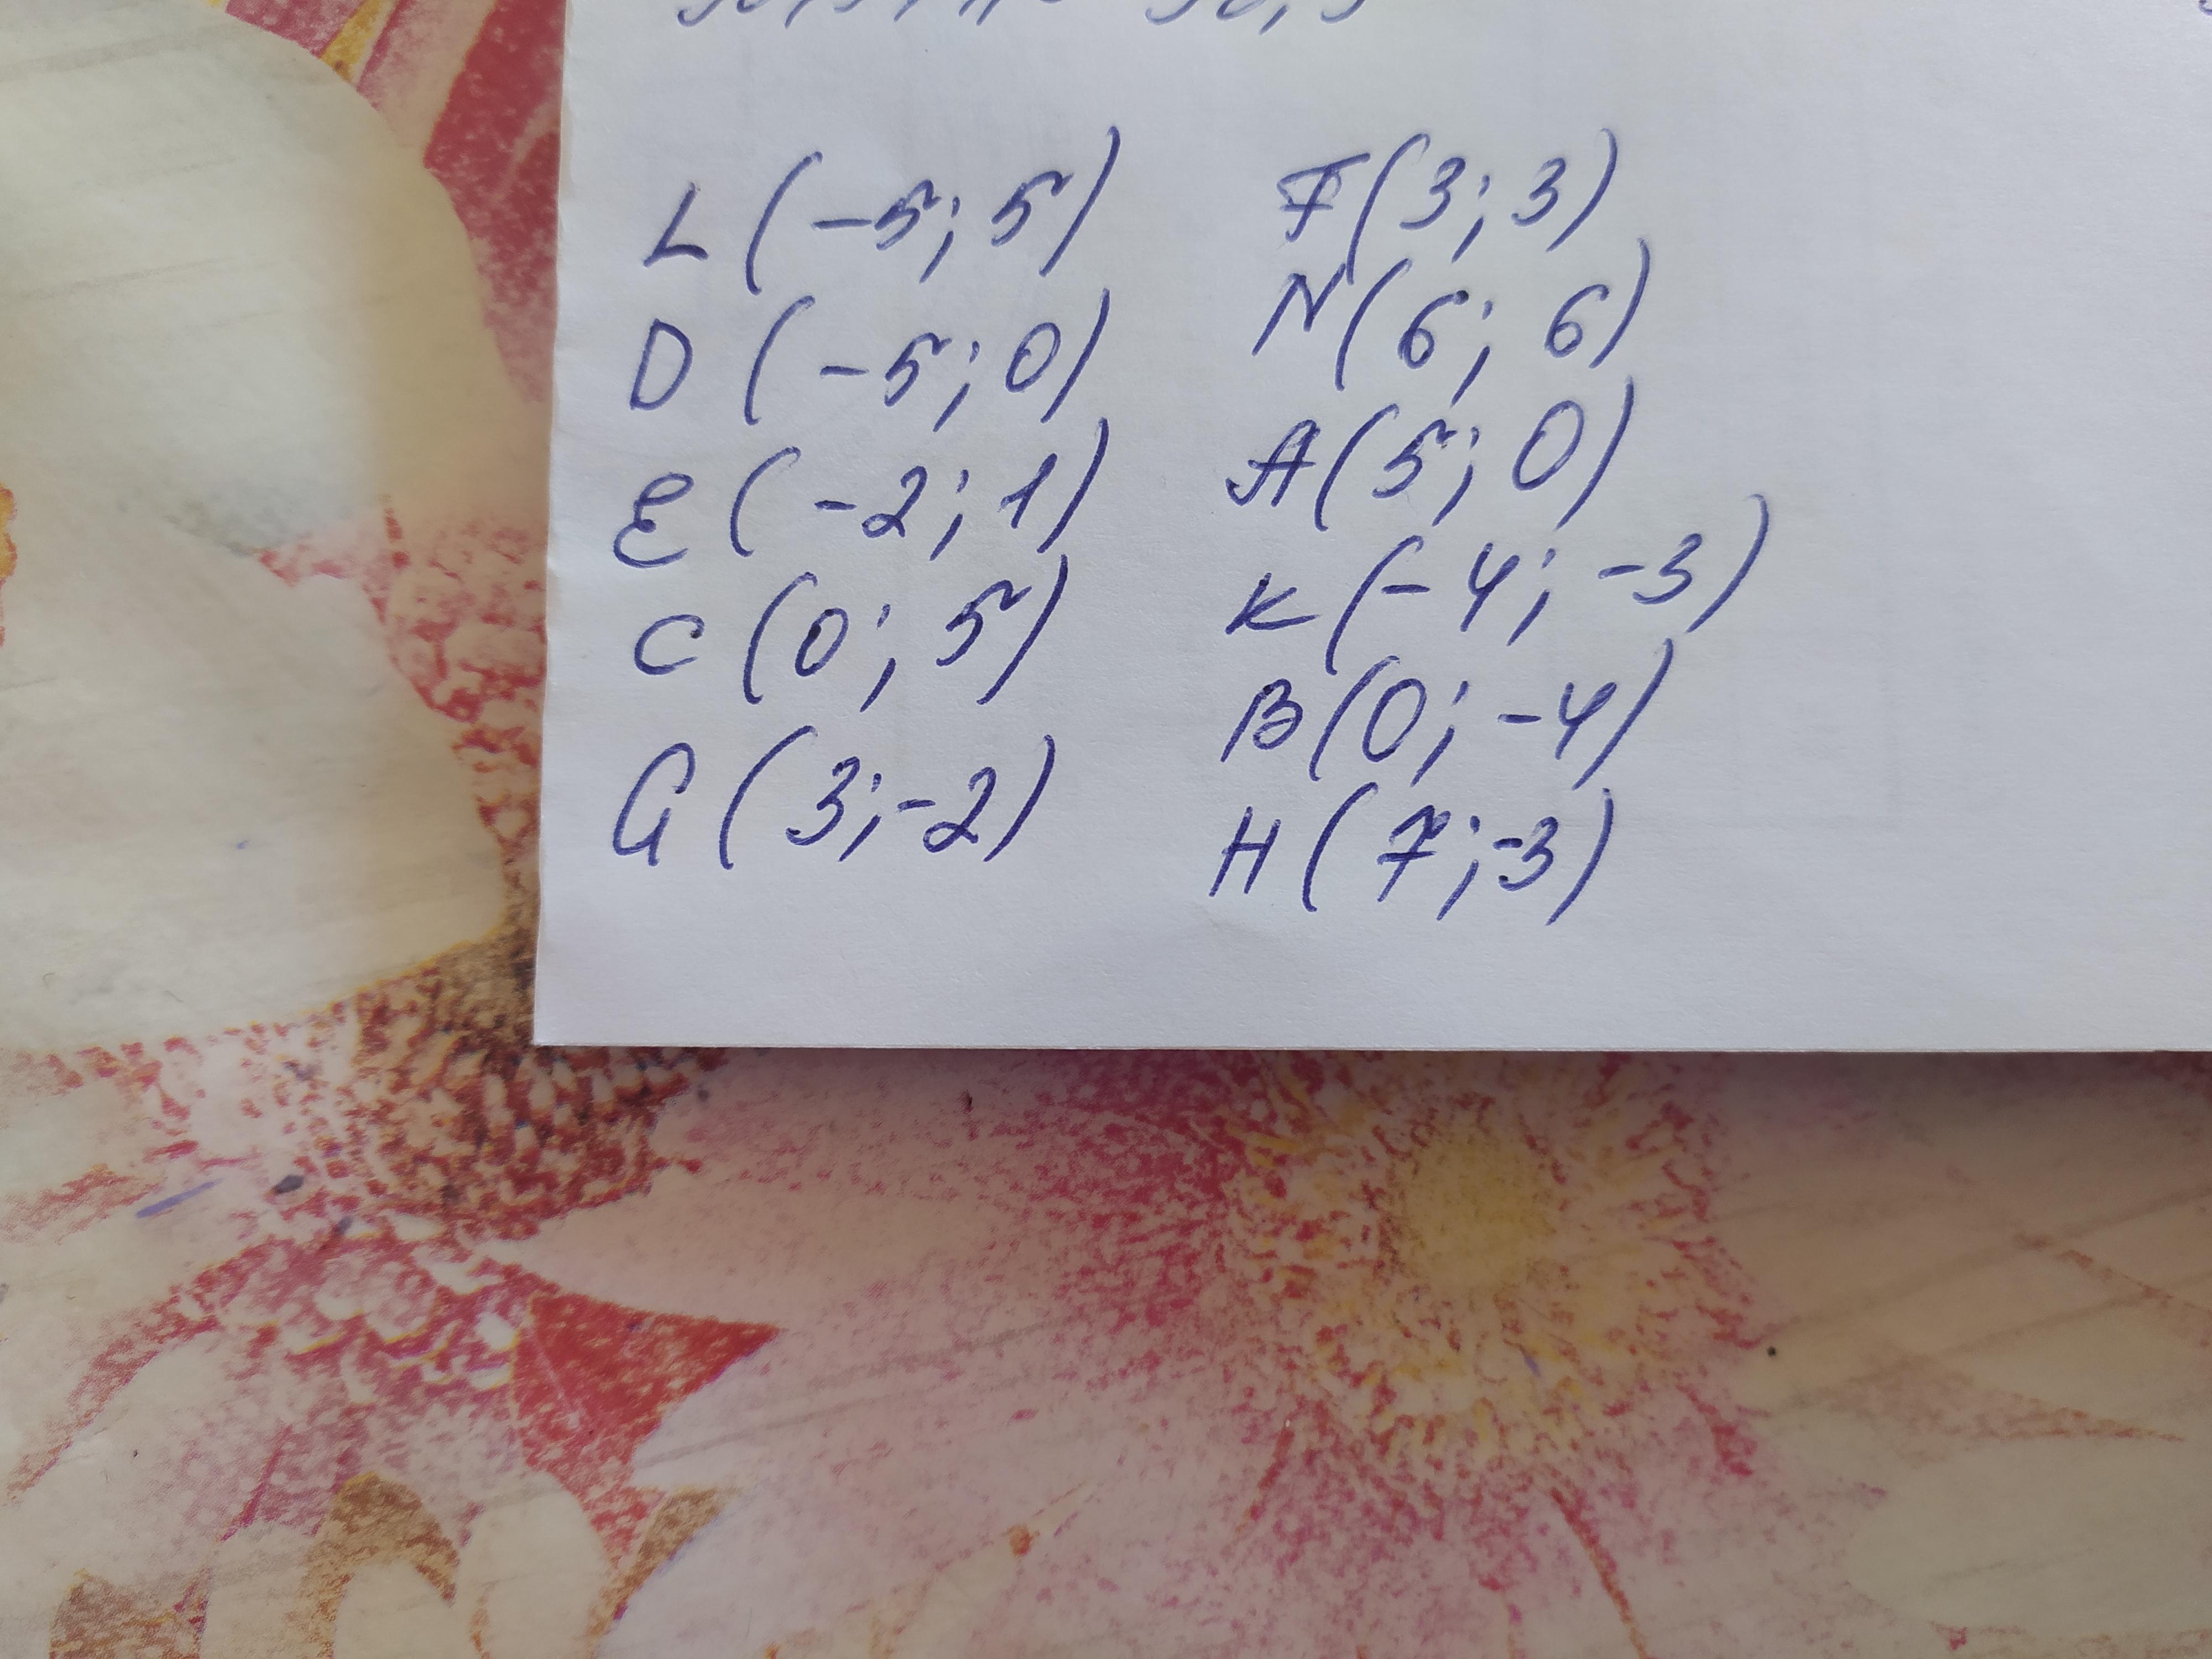 L (-5; 5)
D (-5; 0)
E (-2; 1)
C (0; 5)
G (3; -2)
F (3; 3)
N (6; 6)
A (5; 0)
K (-4; -3)
B (0; -4)
H (7; -3)